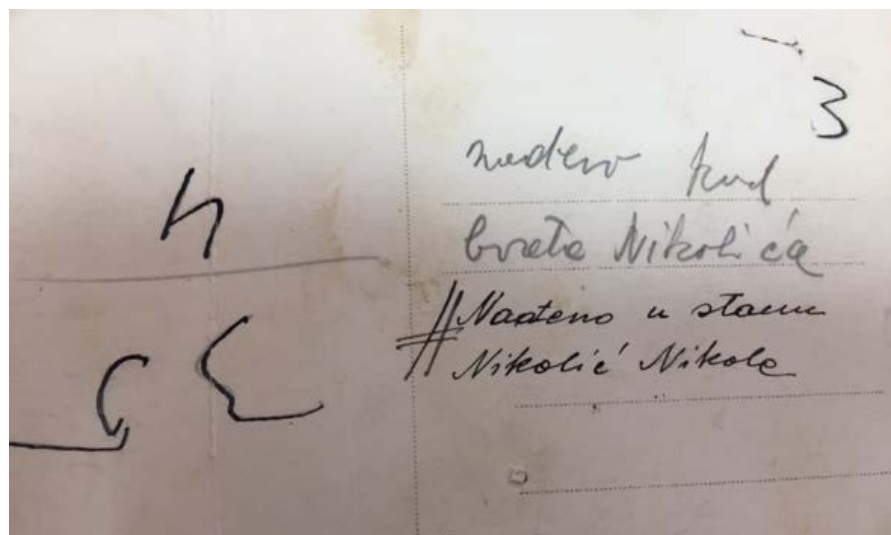 3
nađeno kod
brata Nikolića
4
Nađeno u stanu
Nikolić Nikole